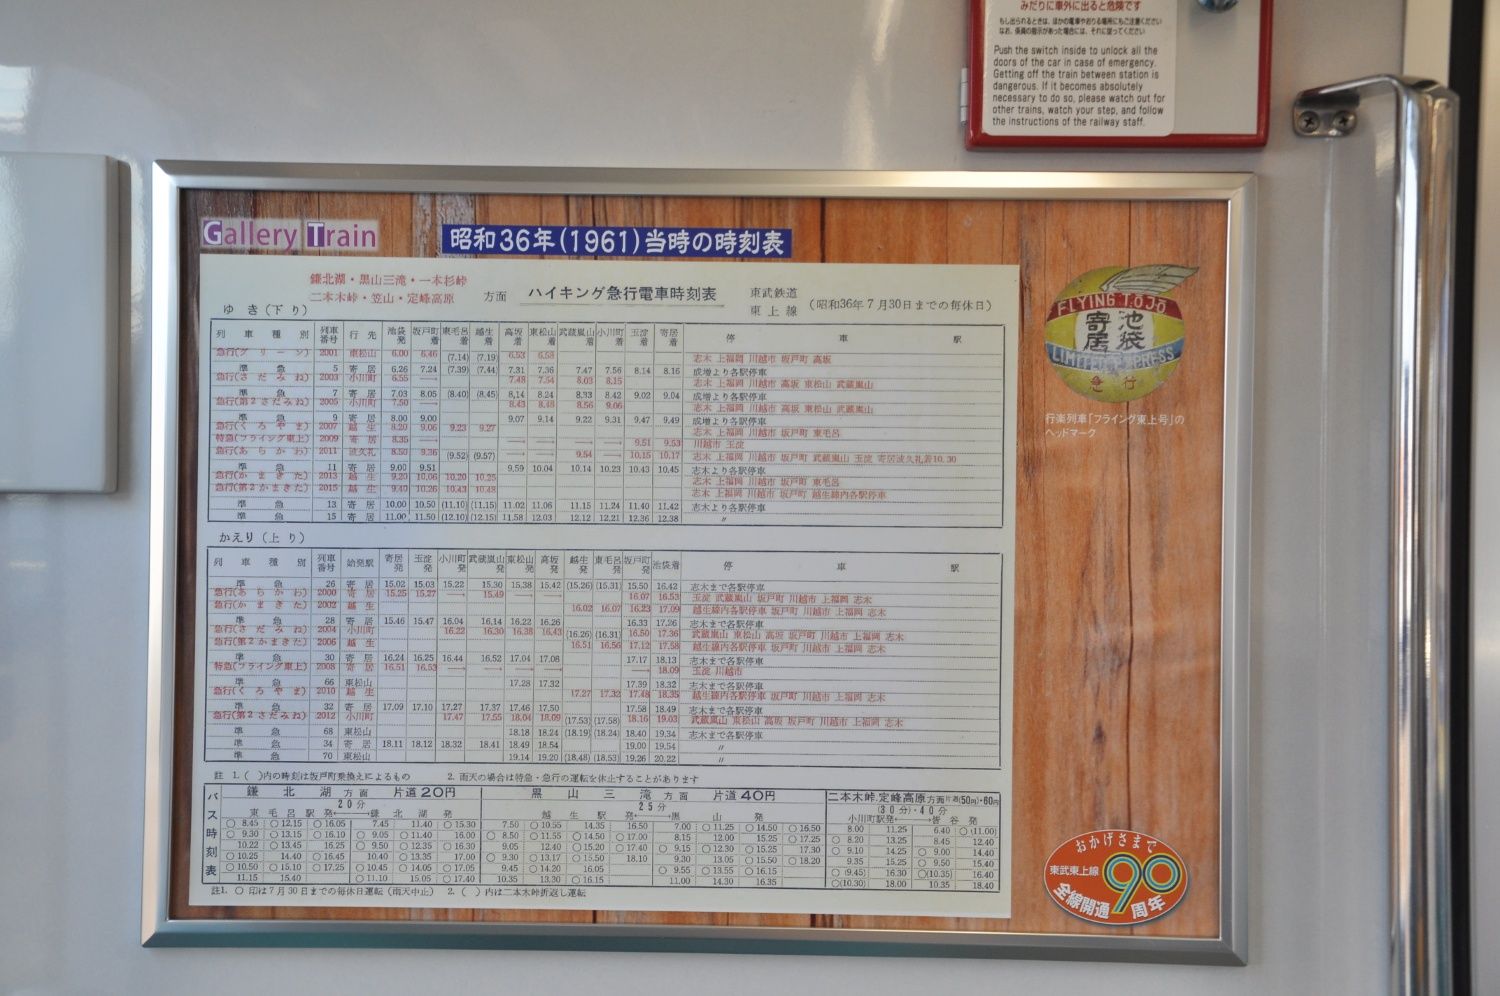 みだりに車外に出ると危険です
もし出られるときは、ほかの電車やおりる場所にもご注意ください
なお、係員の指示があった場合には、それに従ってください
Push the switch inside to unlock all the
doors of the car in case of emergency.
Getting off the train between station is
dangerous. If it becomes absolutely
necessary to do so, please watch out for
other trains, watch your step, and follow
the instructions of the railway staff.
Gallery Train
昭和36年(1961)当時の時刻表
鎌北湖・黒山三滝・一本杉峠
二本木峠・笠山・定峰高原 方面 ハイキング急行電車時刻表 東武鉄道 東上線 (昭和36年7月30日までの毎休日)
ゆき(下り)
列車種別 列車番号 行先 池袋発 坂戸町発 東毛呂着 越生着 高坂着 東松山着 武蔵嵐山着 小川町着 玉淀着 寄居着 停車駅
急行(グリーン) 2001 東松山 6.00 6.46 (7.14) (7.19) 6.53 6.58 志木 上福岡 川越市 坂戸町 高坂
準急 5 寄居 6.26 7.24 (7.39) (7.44) 7.31 7.36 7.47 7.56 8.14 8.16 成増より各駅停車
急行(さだみね) 2003 小川町 6.55 → 7.48 7.54 8.03 8.15 志木 上福岡 川越市 高坂 東松山 武蔵嵐山
準急 7 寄居 7.03 8.05 (8.40) (8.45) 8.14 8.24 8.33 8.42 9.02 9.04 成増より各駅停車
急行(第2さだみね) 2005 小川町 7.50 → 8.43 8.48 8.56 9.06 志木 上福岡 川越市 高坂 東松山 武蔵嵐山
準急 9 寄居 8.00 9.00 9.07 9.14 9.22 9.31 9.47 9.49 成増より各駅停車
急行(くろやま) 2007 越生 8.20 9.06 9.23 9.27 志木 上福岡 川越市 坂戸町 東毛呂
特急(フライング東上) 2009 寄居 8.35 → → → → → 9.51 9.53 川越市 玉淀
急行(あらかわ) 2011 波久礼 8.50 9.36 (9.52) (9.57) → → 9.54 → 10.15 10.17 志木 上福岡 川越市 坂戸町 武蔵嵐山 玉淀 寄居波久礼着10.30
準急 11 寄居 9.00 9.51 9.59 10.04 10.14 10.23 10.43 10.45 志木より各駅停車
急行(かまきた) 2013 越生 9.20 10.06 10.20 10.25 志木 上福岡 川越市 坂戸町 東毛呂
急行(第2かまきた) 2015 越生 9.40 10.26 10.43 10.48 志木 上福岡 川越市 坂戸町 越生線内各駅停車
準急 13 寄居 10.00 10.50 (11.10) (11.15) 11.02 11.06 11.15 11.24 11.40 11.42 志木より各駅停車
準急 15 寄居 11.00 11.50 (12.10) (12.15) 11.58 12.03 12.12 12.21 12.36 12.38 〃
かえり(上り)
列車種別 列車番号 始発駅 寄居発 玉淀発 小川町発 武蔵嵐山発 東松山発 高坂発 越生発 東毛呂発 坂戸町発 池袋着 停車駅
準急 26 寄居 15.02 15.03 15.22 15.30 15.38 15.42 (15.26) (15.31) 15.50 16.42 志木まで各駅停車
急行(あらかわ) 2000 寄居 15.25 15.27 → 15.49 → → 16.07 16.53 玉淀 武蔵嵐山 坂戸町 川越市 上福岡 志木
急行(かまきた) 2002 越生 16.02 16.07 16.23 17.09 越生線内各駅停車 坂戸町 川越市 上福岡 志木
準急 28 寄居 15.46 15.47 16.04 16.14 16.22 16.26 16.33 17.26 志木まで各駅停車
急行(さだみね) 2004 小川町 16.22 16.30 16.38 16.43 (16.26) (16.31) 16.50 17.36 武蔵嵐山 東松山 高坂 坂戸町 川越市 上福岡 志木
急行(第2かまきた) 2006 越生 16.51 16.56 17.12 17.58 越生線内各駅停車 坂戸町 川越市 上福岡 志木
準急 30 寄居 16.24 16.25 16.44 16.52 17.04 17.08 17.17 18.13 志木まで各駅停車
特急(フライング東上) 2008 寄居 16.51 16.53 → → → → → 18.09 玉淀 川越市
準急 66 東松山 17.28 17.32 17.39 18.32 志木まで各駅停車
急行(くろやま) 2010 越生 17.27 17.32 17.48 18.35 越生線内各駅停車 坂戸町 川越市 上福岡 志木
準急 32 寄居 17.09 17.10 17.27 17.37 17.46 17.50 17.58 18.49 志木まで各駅停車
急行(第2さだみね) 2012 小川町 17.47 17.55 18.04 18.09 (17.53) (17.58) 18.16 19.03 武蔵嵐山 東松山 高坂 坂戸町 川越市 上福岡 志木
準急 68 東松山 18.18 18.24 (18.19) (18.24) 18.40 19.34 志木まで各駅停車
準急 34 寄居 18.11 18.12 18.32 18.41 18.49 18.54 19.00 19.54 〃
準急 70 東松山 19.14 19.20 (18.48) (18.53) 19.26 20.22 〃
註 1.( )内の時刻は坂戸町乗換えによるもの 2.雨天の場合は特急・急行の運転を休止することがあります
バス時刻表
鎌北湖方面 片道20円 黒山三滝方面 片道40円 二本木峠.定峰高原方面片道(50円)・60円
20分 25分 (30分)・40分
東毛呂駅発←→鎌北湖発 越生駅発←→黒山発 小川町駅発←→皆谷発
○8.45 ○12.15 ○16.05 7.45 11.40 ○15.30 7.50 ○10.55 14.35 16.50 7.00 ○11.25 ○14.50 ○16.50 8.00 11.25 6.40 ○(11.00)
○9.30 ○13.15 ○16.10 ○9.05 ○11.40 16.00 ○8.50 ○11.55 ○14.50 ○17.00 8.15 12.00 ○15.25 ○17.25 ○8.20 13.25 8.45 12.40
10.22 ○13.45 16.25 ○9.50 ○12.35 ○16.30 9.05 12.40 ○15.20 ○17.40 ○9.15 ○12.30 ○15.25 17.30 ○9.10 14.25 ○9.00 14.40
○10.25 14.40 ○16.45 10.40 ○13.35 17.00 ○9.30 ○13.17 ○15.50 18.10 9.30 13.05 ○15.50 ○18.20 9.35 15.25 ○9.50 15.40
○10.50 ○15.10 ○17.25 ○10.45 ○14.05 ○17.05 9.45 ○14.20 16.05 ○9.55 ○13.55 ○16.15 ○(9.45) 16.30 ○(10.35) 16.40
11.15 15.40 ○11.10 15.05 ○17.40 10.35 13.30 ○16.15 11.00 14.30 16.35 ○(10.30) 18.00 10.35 18.40
註1. ○印は7月30日までの毎休日運転(雨天中止) 2.( )内は二本木峠折返し運転
FLYING TOJO
池袋
寄居
LIMITED EXPRESS
急行
行楽列車「フライング東上号」の
ヘッドマーク
おかげさまで
東武東上線 90
全線開通 周年